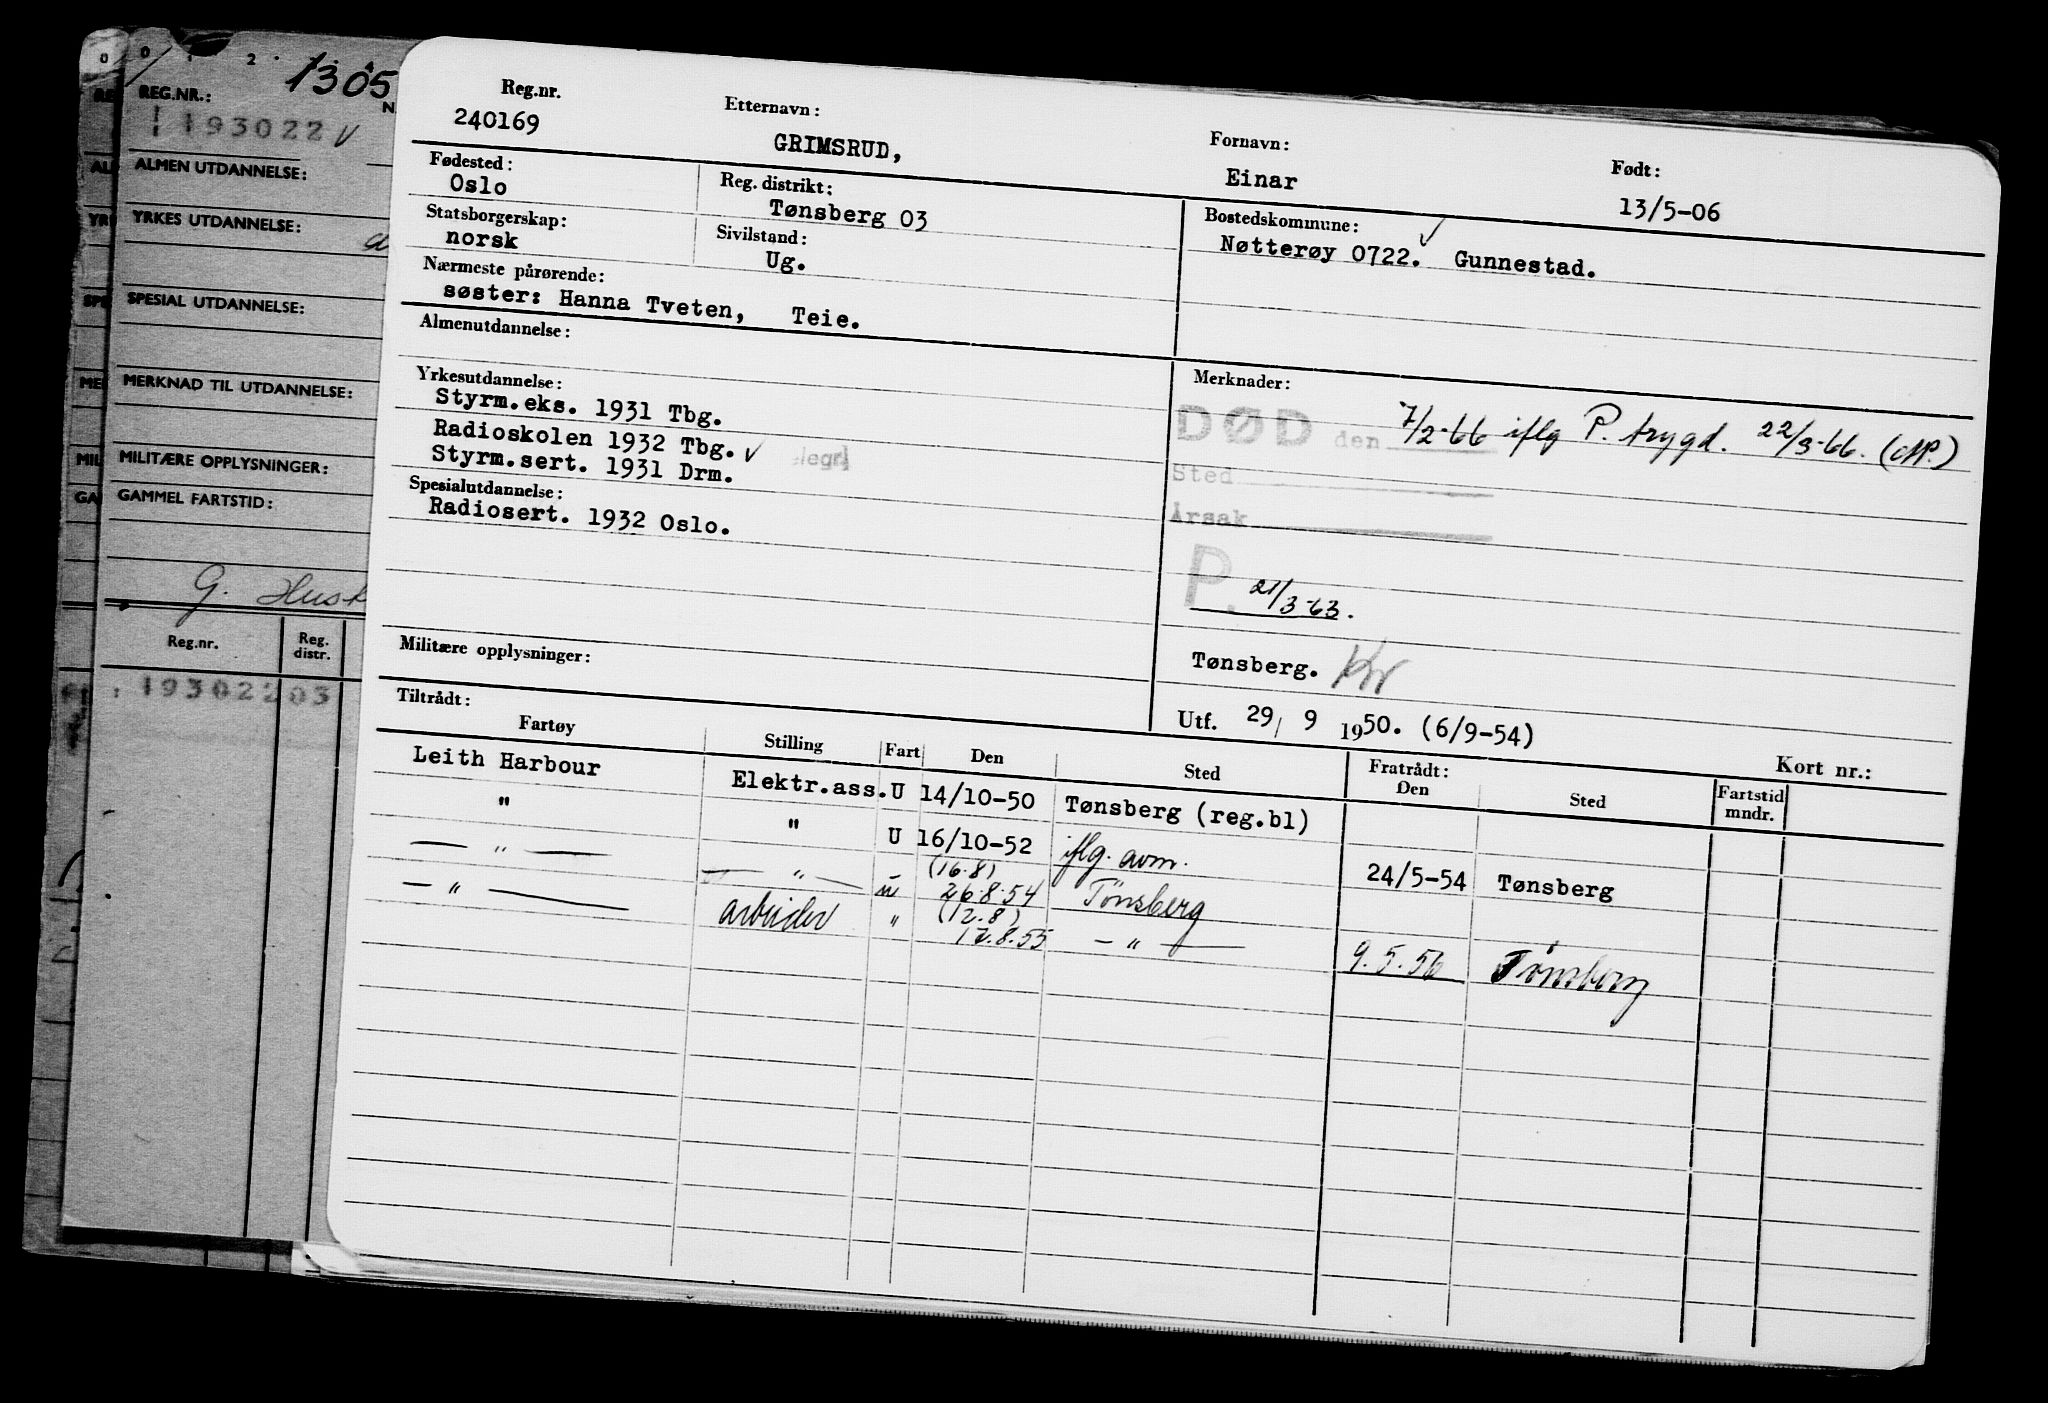 0 0 1 2
1305
REG.NR.:
193022 v
ALMEN UTDANNELSE:
YRKES UTDANNELSE:
SPESIAL UTDANNELSE:
MERKNAD TIL UTDANNELSE:
MILITÆRE OPPLYSNINGER:
GAMMEL FARTSTID:
G. Husk
Reg.nr. Reg. distr.
193022 03
Reg.nr. Etternavn: Fornavn: Født:
240169 GRIMSRUD, Einar 13/5-06
Fødested: Reg. distrikt: Bostedskommune:
Oslo Tønsberg 03 Nøtterøy 0722. Gunnestad.
Statsborgerskap: Sivilstand:
norsk Ug.
Nærmeste pårørende:
søster: Hanna Tveten, Teie.
Almenutdannelse:
Yrkesutdannelse:
Styrm.eks. 1931 Tbg.
Radioskolen 1932 Tbg. v
Styrm.sert. 1931 Drm.
Spesialutdannelse:
Radiosert. 1932 Oslo.
Militære opplysninger:
Merknader:
DØD den 7/2-66 iflg P. trygd. 22/3-66. (AP.)
Sted
Årsak
P. 21/3-63.
Tønsberg. Kr
Utf. 29/ 9 1950. (6/9-54)
Tiltrådt: Fratrådt: Kort nr.:
Fartøy Stilling Fart Den Sted Den Sted Fartstid mndr.
Leith Harbour Elektr.ass. U 14/10-50 Tønsberg (reg.bl)
" " U 16/10-52 iflg. avm. 24/5-54 Tønsberg
— " — — " — u (16.8) 26.8.54 Tønsberg
— " — arbeider " (12.8) 12.8.55 — " — 9.5.56 Tønsberg